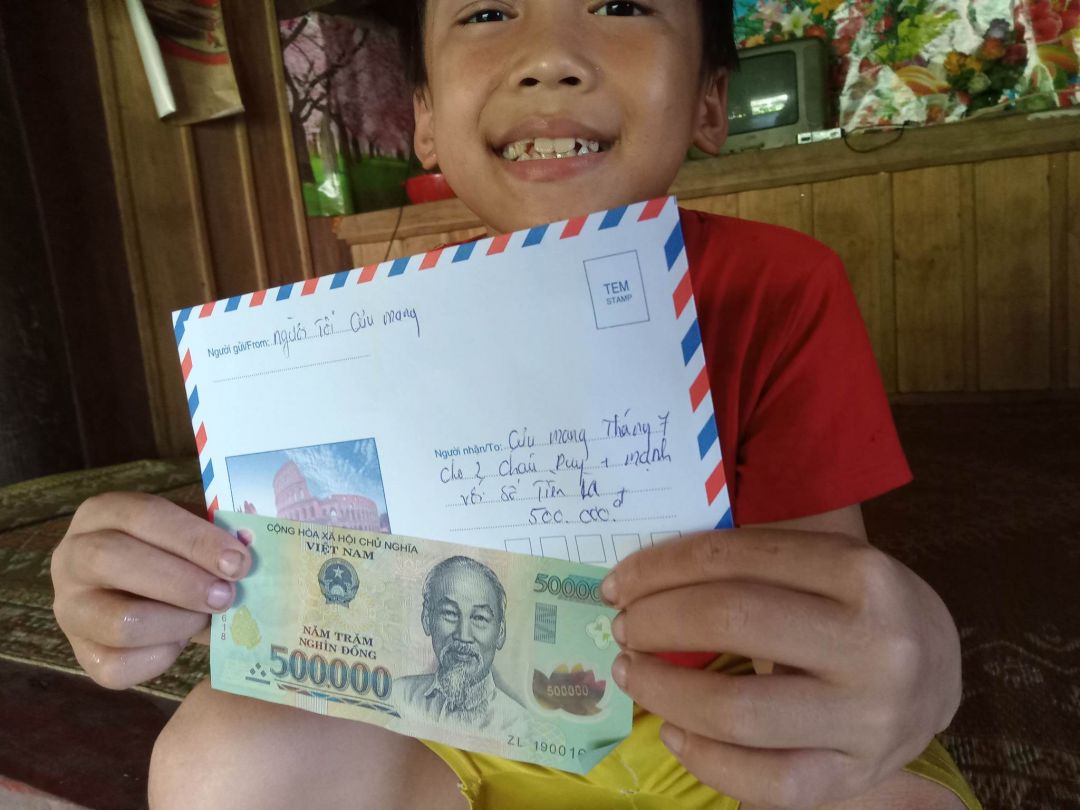 TEM
STAMP
Người gửi/From: người Tôi Cưu mang
Người nhận/To: Cưu mang Tháng 7
cho 2 cháu Duy + mạnh
với Số Tiền Là
500.000đ
CỘNG HÒA XÃ HỘI CHỦ NGHĨA
VIỆT NAM
500000
NĂM TRĂM
NGHÌN ĐỒNG
500000
500000
618
ZL 190016